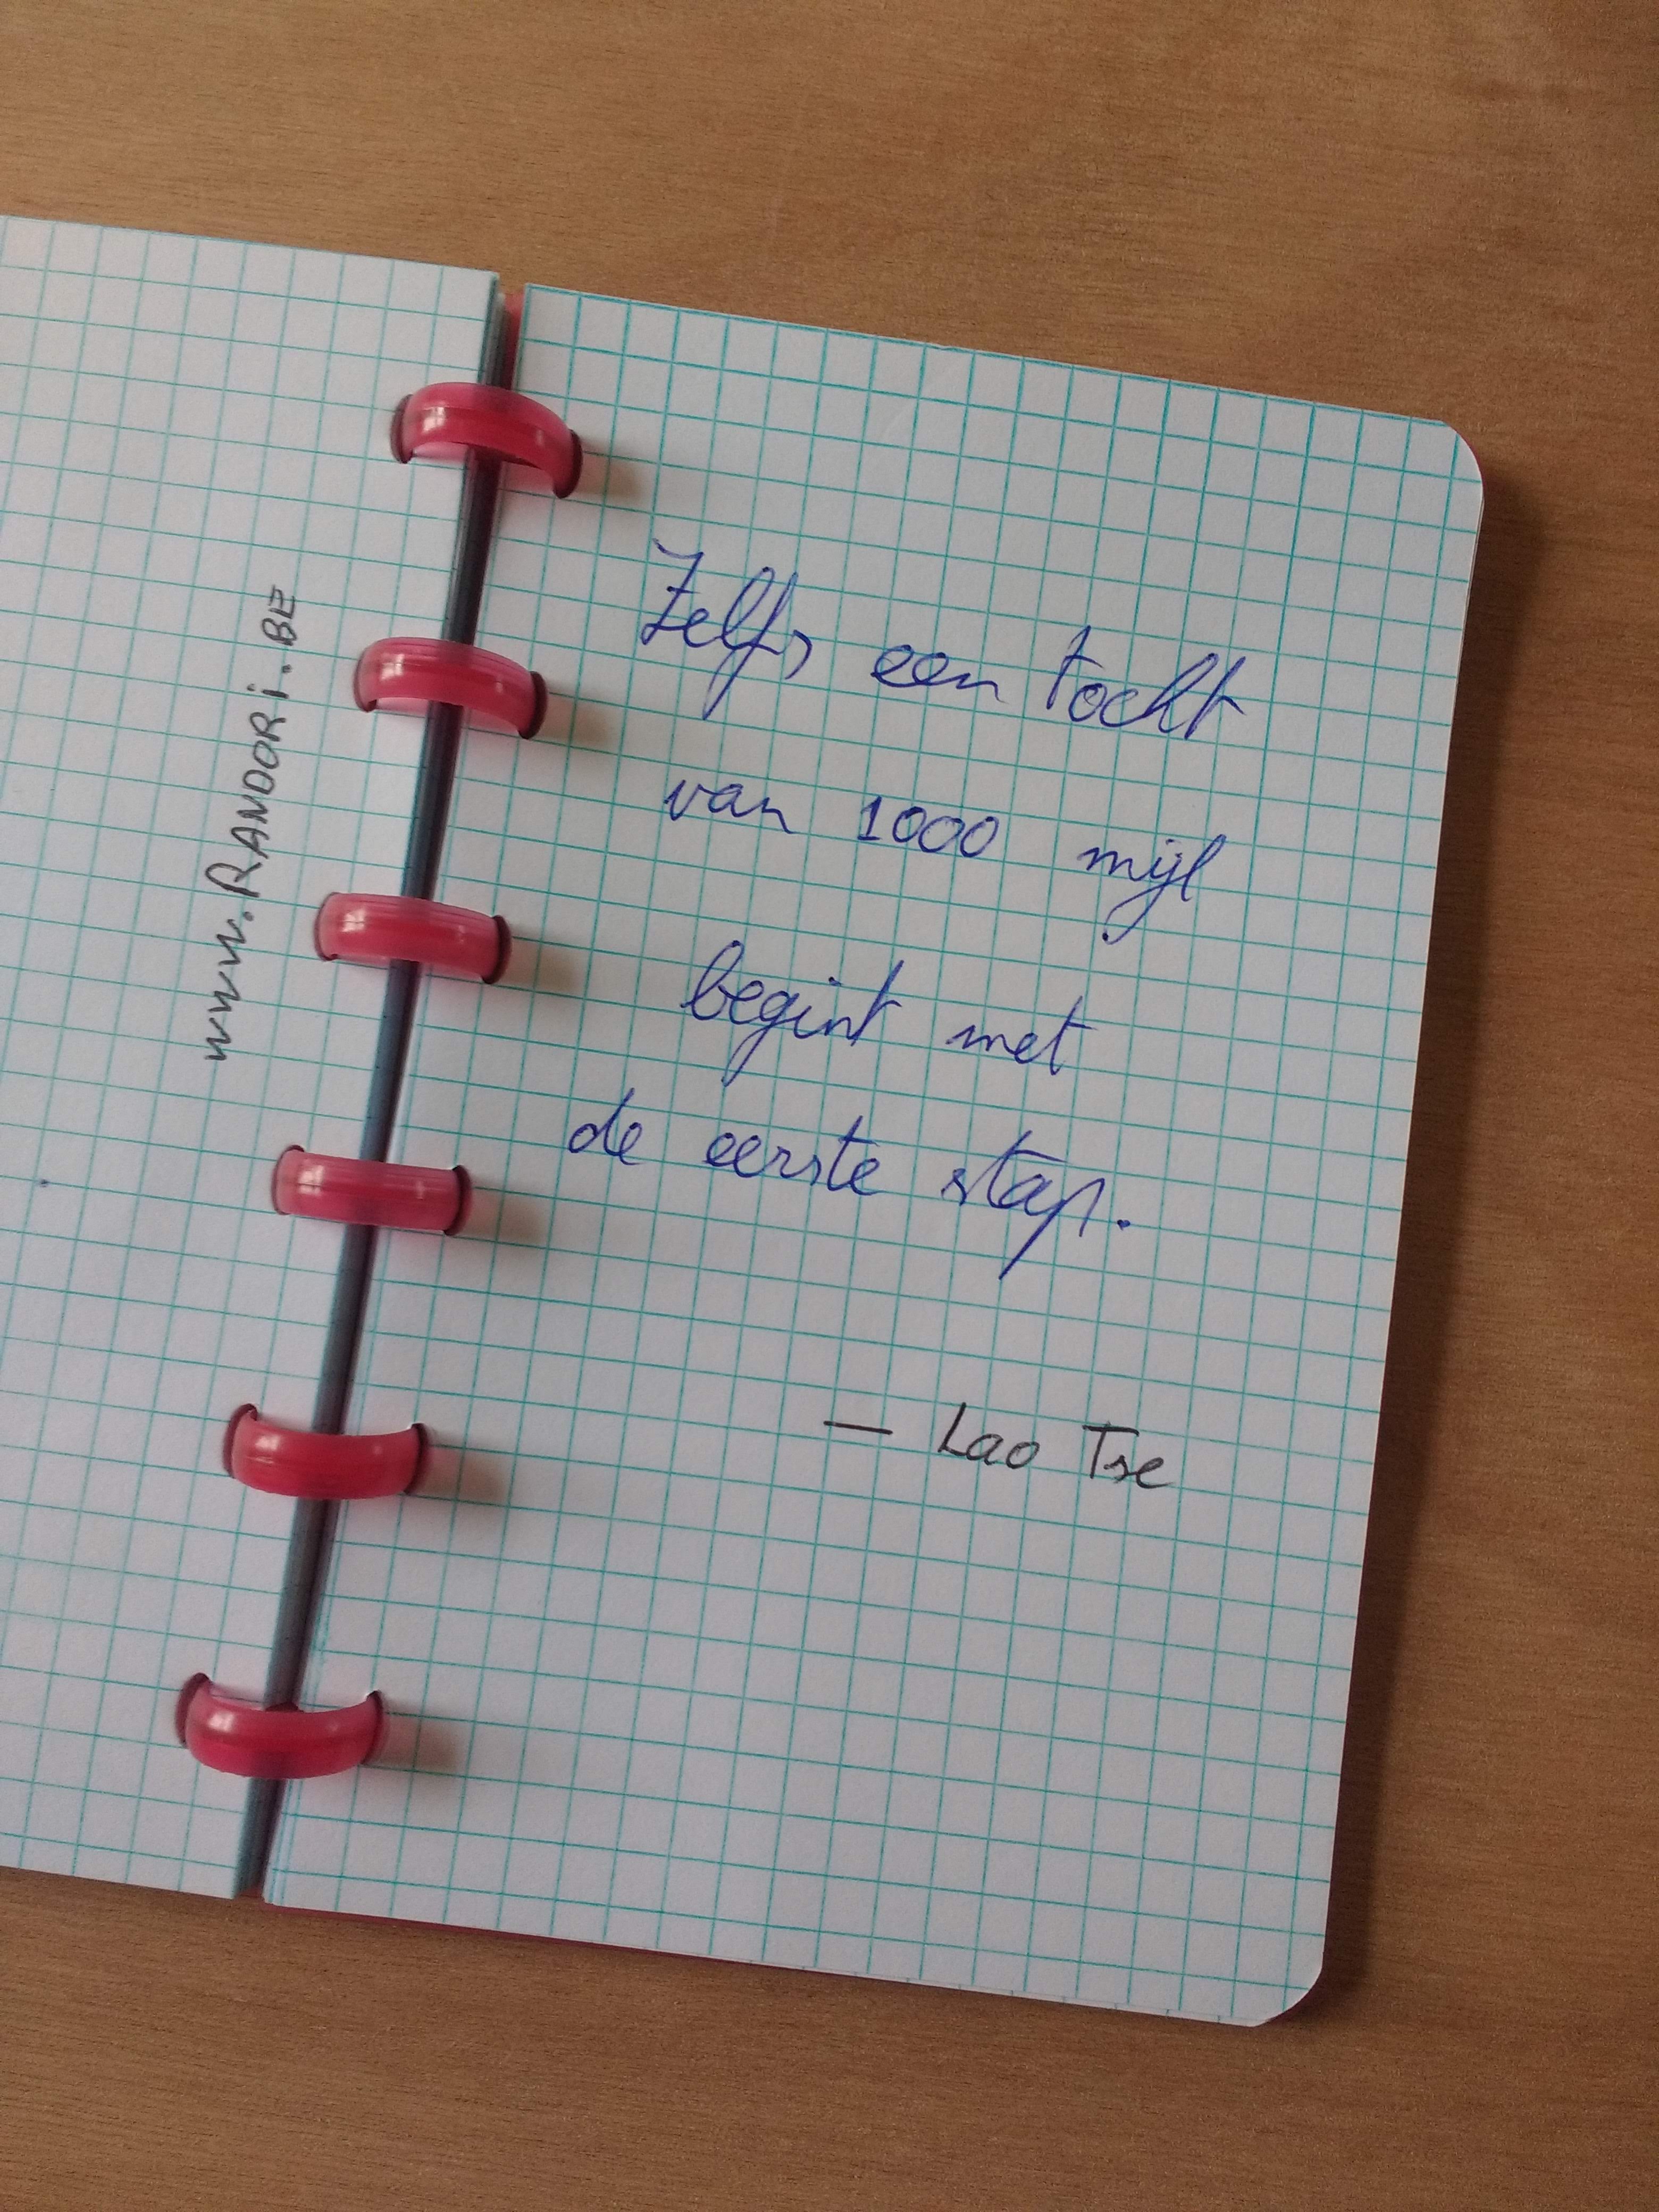 www.RANDORi.BE
Zelfs een tocht
van 1000 mijl
begint met
de eerste stap.
— Lao Tse